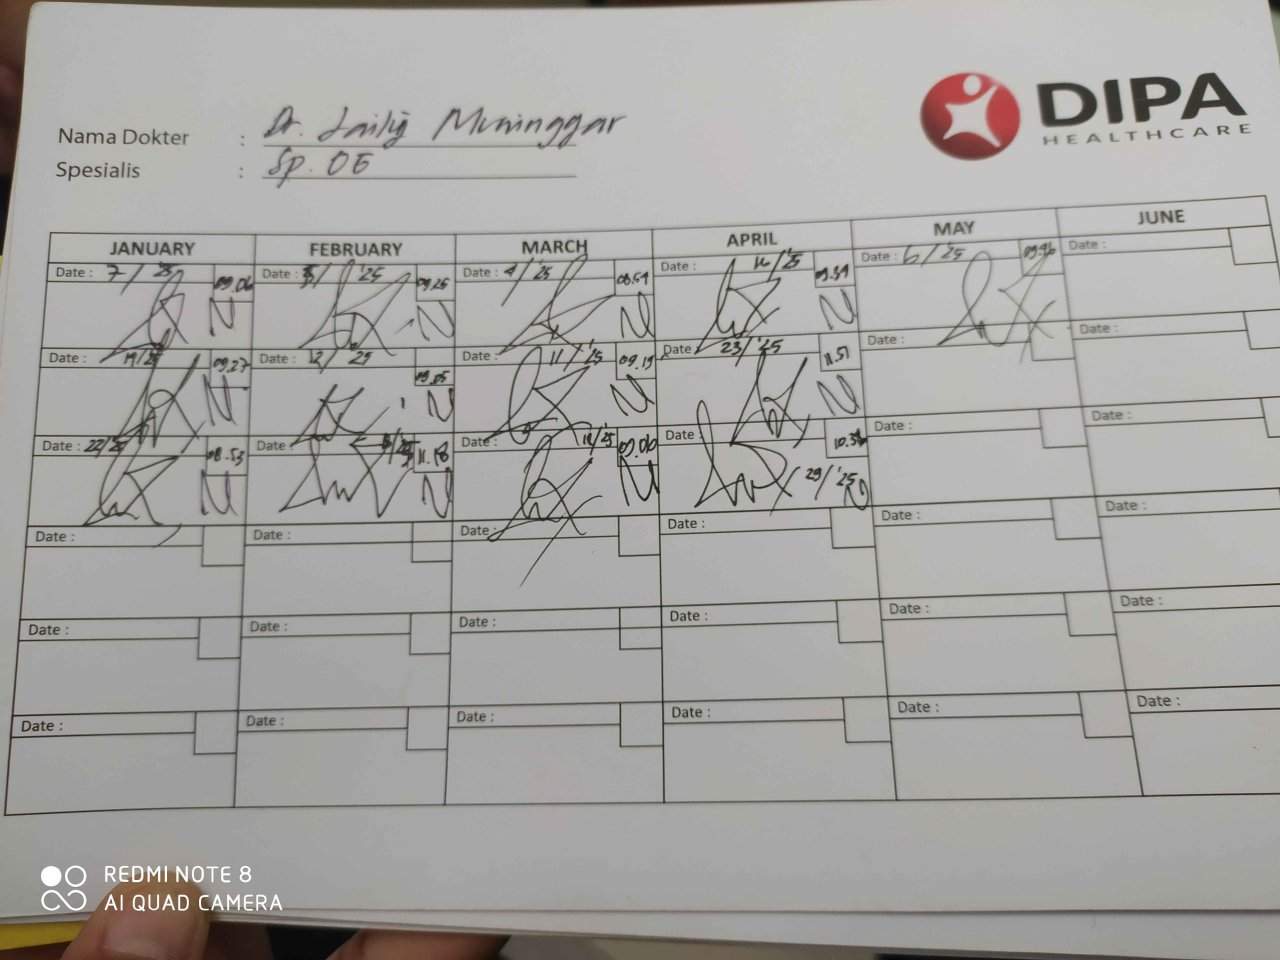 DIPA
HEALTHCARE
Nama Dokter : Dr. Laily Muninggar
Spesialis : Sp. OG
JANUARY FEBRUARY MARCH APRIL MAY JUNE
Date : 7/'25 09.06 Date : '25 09.25 Date : 4/'25 08.59 Date : 16/'25 09.59 Date : 6/'25 09.46 Date :
N N N N
Date : 14/'25 09.27 Date : 12/'25 09.05 Date : 11/'25 09.19 Date : 23/'25 11.51 Date : Date :
N N N N
Date : 22/'25 08.53 Date : /25 11.18 Date : /'25 09.06 Date : 10.36 Date : Date :
N N N 29/'25 N
Date : Date : Date : Date : Date : Date :
Date : Date : Date : Date : Date : Date :
Date : Date : Date : Date : Date : Date :
REDMI NOTE 8
AI QUAD CAMERA